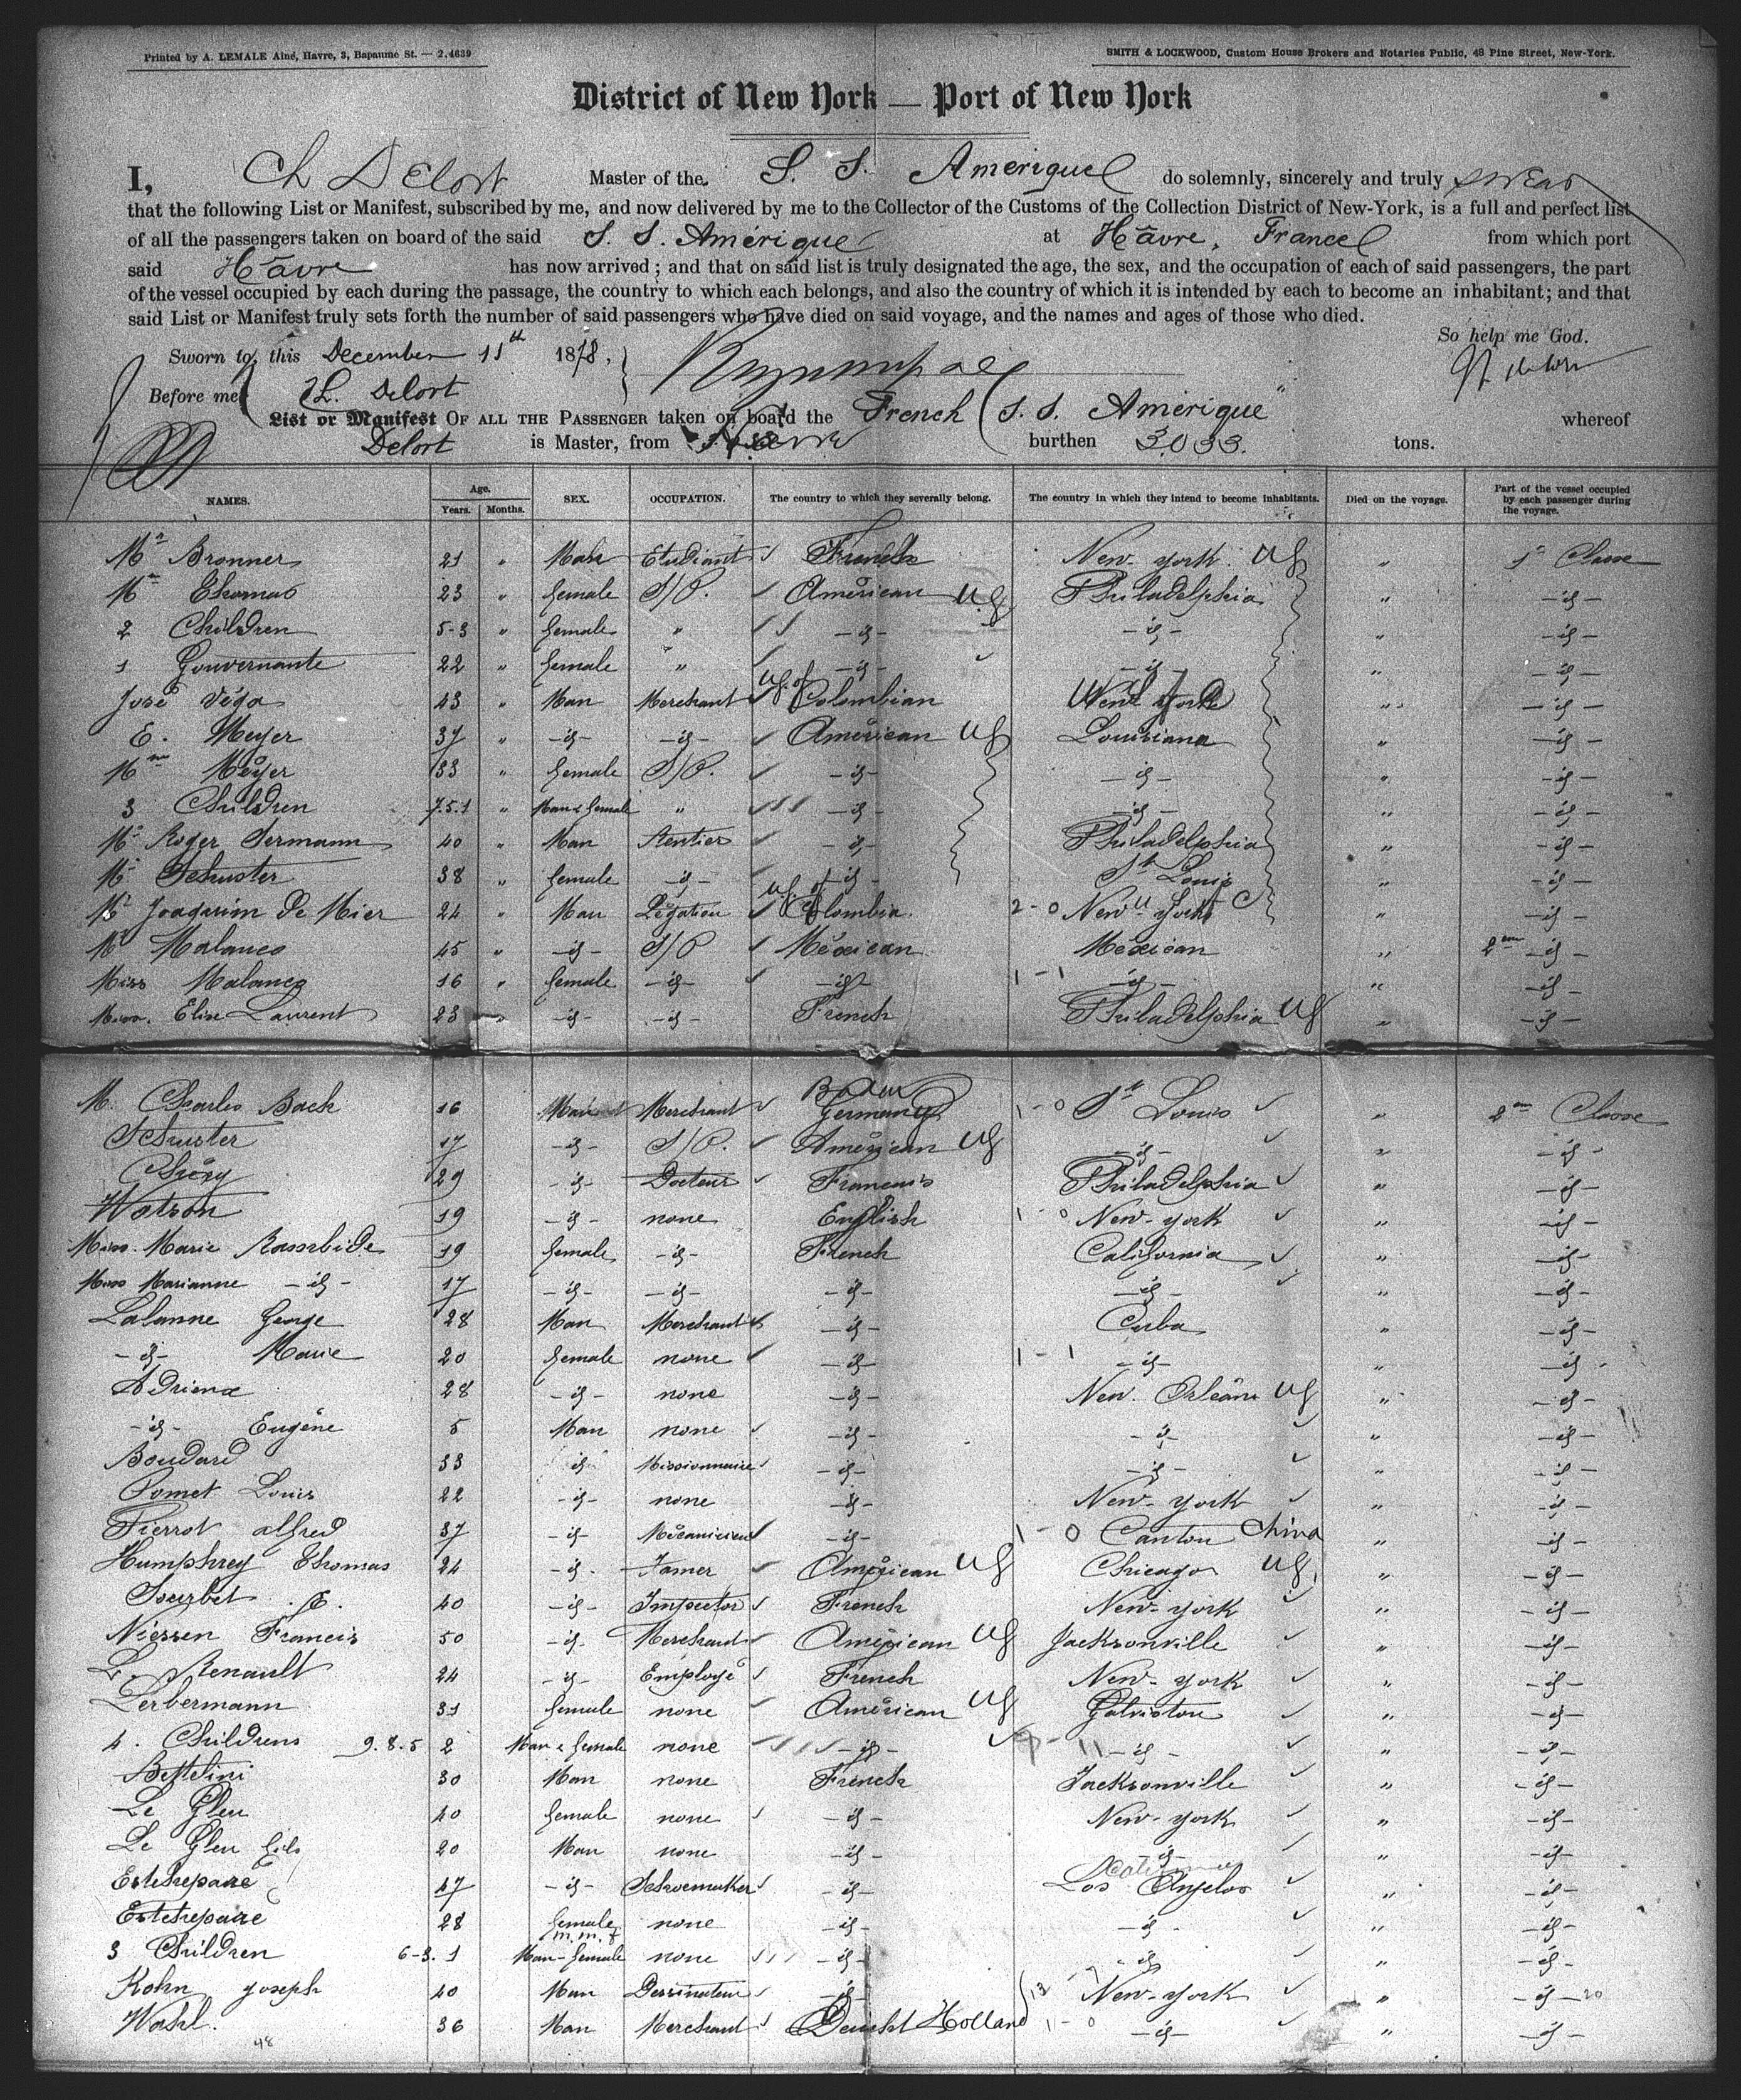 Printed by A. LEMALE Aîné, Havre, 3, Bapaume St. — 2.4639
SMITH & LOCKWOOD, Custom House Brokers and Notaries Public, 48 Pine Street, New-York.
District of New York — Port of New York
I, Ch Delort Master of the S. S. Amérique do solemnly, sincerely and truly swear
that the following List or Manifest, subscribed by me, and now delivered by me to the Collector of the Customs of the Collection District of New-York, is a full and perfect list
of all the passengers taken on board of the said S. S. Amérique at Hâvre, France from which port
said Hâvre has now arrived ; and that on said list is truly designated the age, the sex, and the occupation of each of said passengers, the part
of the vessel occupied by each during the passage, the country to which each belongs, and also the country of which it is intended by each to become an inhabitant; and that
said List or Manifest truly sets forth the number of said passengers who have died on said voyage, and the names and ages of those who died.
So help me God.
Sworn to, this December 11th 1878,
Before me Delort
List or Manifest OF ALL THE PASSENGER taken on board the French S. S. Amérique" whereof
Delort is Master, from Havre burthen 3033. tons.
NAMES. Age. Years. Months. SEX. OCCUPATION. The country to which they severally belong. The country in which they intend to become inhabitants. Died on the voyage. Part of the vessel occupied by each passenger during the voyage.
Mr Bronner 21 " Man Etudiant French New-york US " 1re Classe
Mme Thomas 23 " female S/P. American US Philadelphia " —id—
2 Children 5-3 " female " —id— —id— " —id—
1 Gouvernante 22 " female " —id— —id— " —id—
José Véga 43 " Man Merchant US of Colombian New York " —id—
E. Meyer 37 " —id— —id— American US Louisiana " —id—
Mme Meyer 33 " female S/P. —id— —id— " —id—
3 Children 7.5.1 " Man & female " —id— —id— " —id—
Mr Roger Sermann 40 " Man Rentier —id— Philadelphia " —id—
Me Schuster 38 " female —id— —id— St Louis " —id—
Mr Joaquim de Mier 24 " Man Légation US of Colombia 2-0 New York " —id—
Mr Malanco 45 " —id— S/P Méxican Méxican " 2eme —id—
Miss Malanco 16 " female —id— —id— 1-1 —id— " —id—
Miss. Elise Laurent 23 " —id— —id— French Philadelphia US " —id—
M. Charles Bach 16 Man Merchant Baden Germany 1-0 St Louis " 2eme Classe
Schuster 17 —id— S/P. American US —id— " —id—
29 —id— Docteur Francais Philadelphia " —id—
Watson 19 —id— none English 1-0 New-york " —id—
Miss. Marie 19 female —id— French California " —id—
Miss Marianne —id— 17 —id— —id— —id— —id— " —id—
Lalanne George 28 Man Merchant —id— Cuba " —id—
—id— Marie 20 female none —id— 1-1 —id— " —id—
28 —id— none —id— New-Orleans US " —id—
—id— Eugène 5 Man none —id— —id— " —id—
Boudard 33 id Missionnaire —id— —id— " —id—
Pomet Louis 22 —id— none —id— New-york " —id—
Pierrot alfred 37 —id— Mécanicien —id— 1-0 Canton China " —id—
Humphrey Thomas 24 —id— Famer American US Chicago US " —id—
Sourbet 40 —id— Inspector French New-york " —id—
Niessen Francis 50 —id— Merchant American US Jacksonville " —id—
L. Renault 24 —id— Employé French New-york " —id—
Lerbermann 31 female none American US Galveston " —id—
4. Childrens 9.8.5 2 Man & female none —id— —id— " —id—
Bettelini 30 Man none French Jacksonville " —id—
Le Gleu 40 female none —id— New-york " —id—
Le Gleu fils 20 Man none —id— —id— " —id—
Estchepare 47 —id— Schoemaker —id— Los Angelos " —id—
Estchepare 28 female none —id— —id— " —id—
3 Children 6-3.1 m.m.f Man-female none —id— —id— " —id—
Kohn joseph 40 Man Dessinateur —id— 13 New-york " —id— 20
Wahl. 36 Man Merchant Holland 1-0 —id— " —id—
48